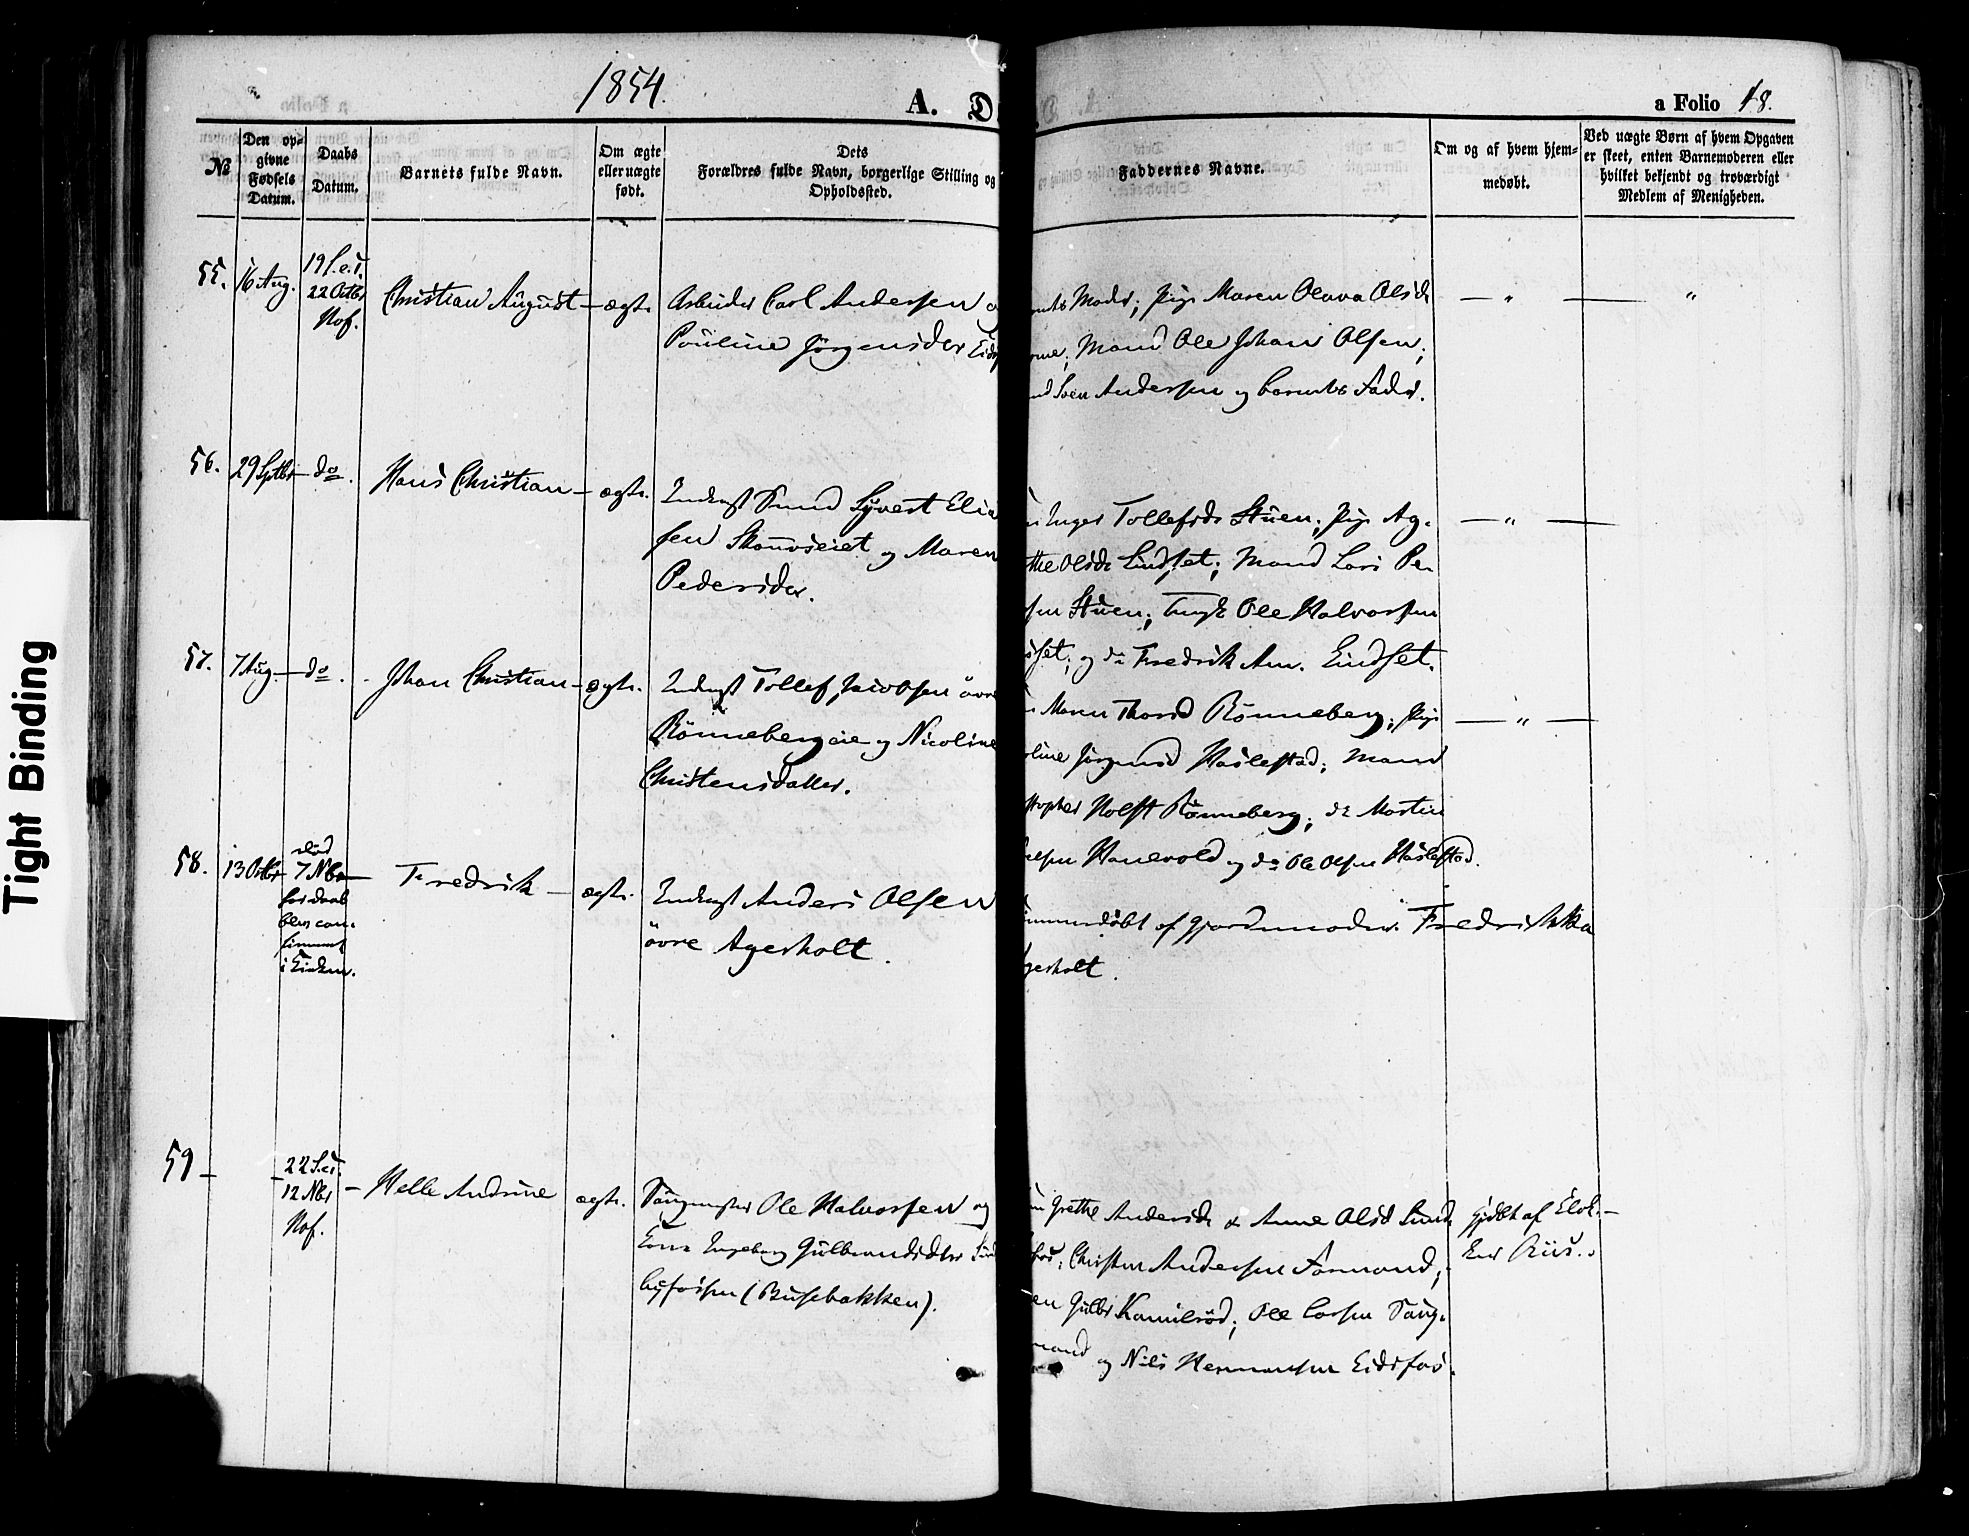 1854.
A. D
a Folio 48.
№
Den op-
givne
Fødsels
Datum.
Daabs
Datum.
Barnets fulde Navn.
Om ægte
eller uægte
født.
Dets
Forældres fulde Navn, borgerlige Stilling og
Opholdssted.
Faddernes Navne.
Om og af hvem hjem-
medøbt.
Ved uægte Børn af hvem Opgaven
er skeet, enten Barnemoderen eller
hvilket bekjendt og troværdigt
Medlem af Menigheden.
55.
16 Aug.
19 S.e.T.
22 Octbr
Hof.
Christian August — ægte
Arbeider Carl Andersen
Pouline Jørgensdtr
Moder; Pige Maren Olava Olsdr
Mand Ole Johan Olsen,
Andersen og barnets Fader.
— " — "
56.
29 Septbr — do.
Hans Christian — ægte.
Sund Syvert Elia
sen Skouvseiet og Maren
Pedersdtr.
Inger Tollefsdr Stuen; Pige Ag-
the Olsdr Lindset; Mand Lars Pe
Stuen; Ungk Ole Halvorsen
set; og do Fredrik Am. Lindset.
— " —
57.
7 Aug. — do.
Johan Christian — ægte.
Tollef Jacobsen övre
Rönnebergeie og Nicoline
Christensdatter.
Maren Thorsd Rönneberg; Pige
oline Jörgensd Haslestad; Mand
stopher Rolfs Rönneberg; do Martin
Hanevold og do Ole Olsen Haslestad.
— " —
58.
13 Octbr
död
7 Nbr
för daab
blev con-
firmeret
i Kirken.
Fredrik — ægte.
Anders Olsen
övre Agerholt.
döbt af Gjordemoder Fredrikka
gerholt.
59 —
22 S.e.T.
12 Nbr
Hof.
— Helle Andrine
ægte.
Ole Halvorsen og
Ingeborg Gulbrandsdtr
byfossen (Busebakken).
Grethe Andersdr & Anne Olsd
Christen Andersen Formand;
Gulbr Kamilröd; Ole Larsen Saug-
mand og Nils Hermansen Eidsfos.
Hjdöbt af Elok.—
Riis.
Tight Binding